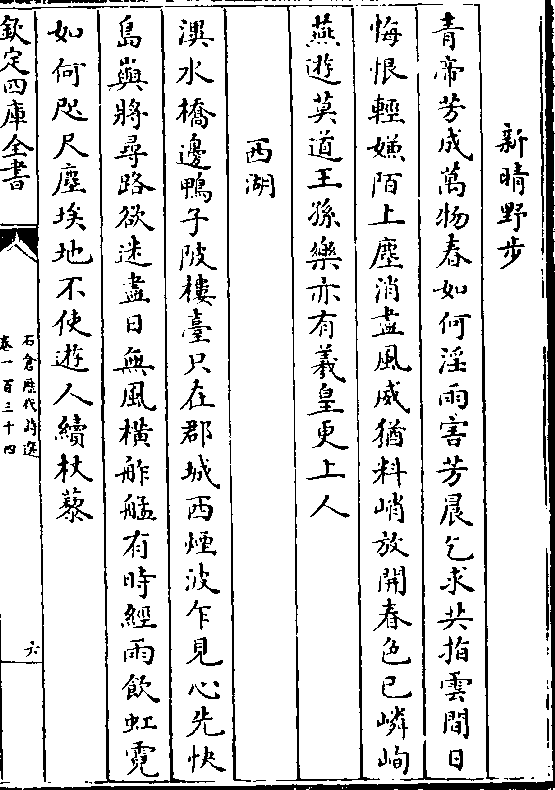 新晴野步
青帝芳成萬物春如何淫雨害芳晨乞求共指雲間日
悔恨輕嫌陌上塵消盡風威猶料峭放開春色已嶙峋
燕遊莫道王孫樂亦有羲皇更上人
西湖
澳水橋邊鴨子陂樓臺只在郡城西煙波乍見心先快
島嶼將尋路欲迷盡日無風橫舴艋有時經雨飲虹霓
如何咫尺塵埃地不使遊人續杖藜
欽定四庫全書
石倉歷代詩選
卷一百三十四
六